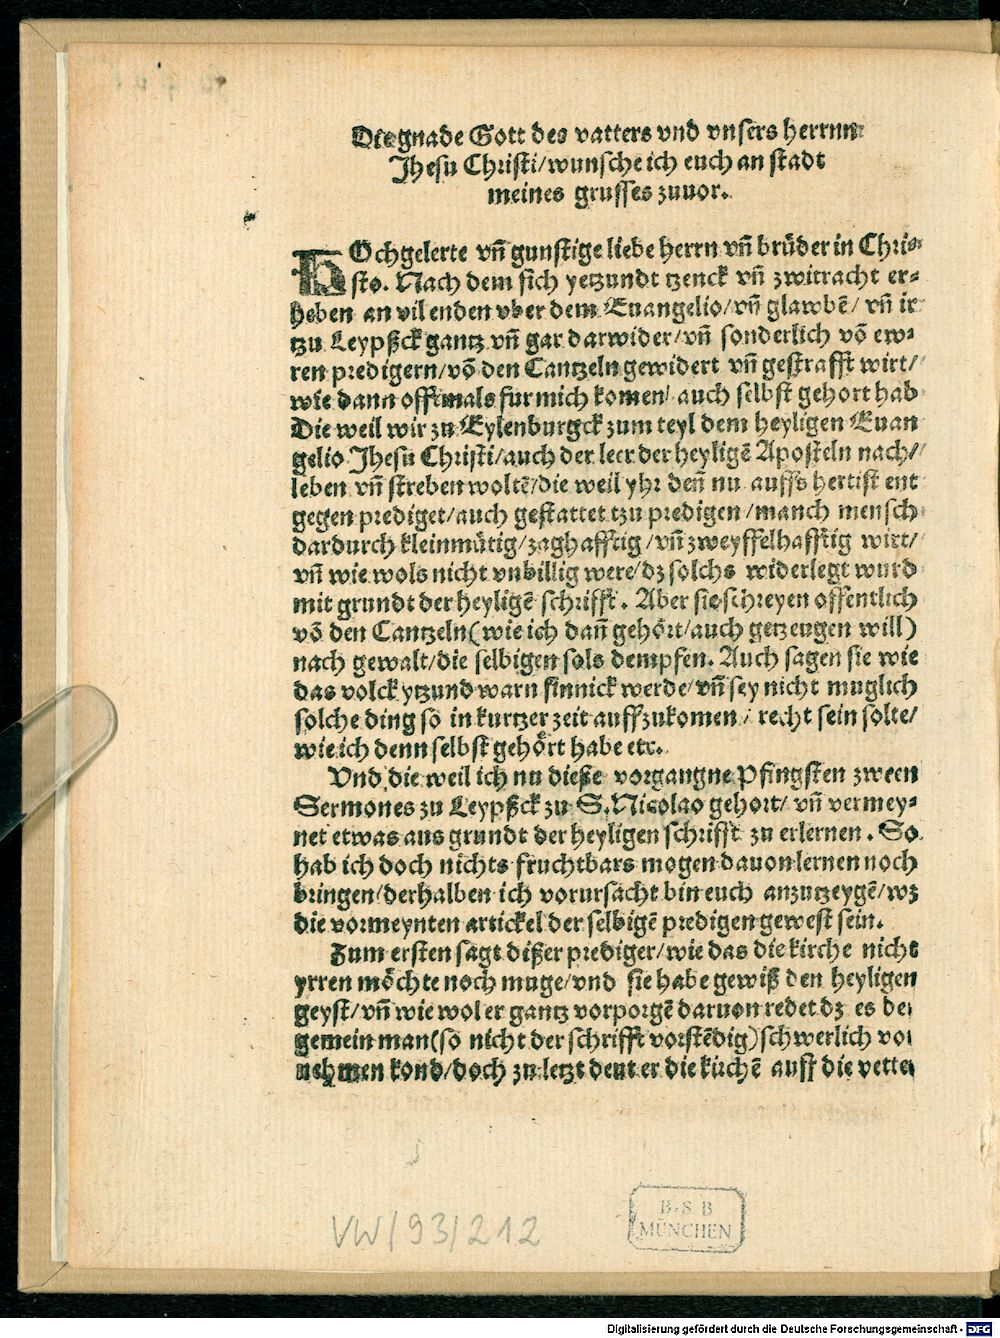 Die gnade Gott des vatters vnd vnsers herrnn
Jhesu Christi/wunsche ich euch an stadt
meines grusses zuuor.
HOchgelerte vñ gunstige liebe herrn vñ brůder in Chri⸗
sto. Nach dem sich yetzundt tzenck vñ zwitracht er⸗
heben an vil enden vber dem Euangelio/vñ glawbē/ vñ ir
tzu Leypßck gantz vñ gar darwider/vñ sonderlich vō ew⸗
ren predigern/vō den Cantzeln gewidert vñ gestrafft wirt/
wie dann offtmals fur mich komen/ auch selbst gehort hab
Die weil wir zu Eylenburgck zum teyl dem heyligen Euan
gelio Jhesu Christi/auch der leer der heyligē Aposteln nach/
leben vñ streben woltē/die weil yhr deñ nu auffs hertist ent
gegen prediget/auch gestattet tzu predigen/manch mensch
dardurch kleinmůtig/zaghafftig/vñ zweyffelhafftig wirt/
vñ wie wols nicht vnbillig were/dz solchs widerlegt wurd
mit grundt der heyligē schrifft. Aber sie schreyen offentlich
vō den Cantzeln(wie ich dañ gehört/auch getzeugen will)
nach gewalt/die selbigen sols dempfen. Auch sagen sie wie
das volck ytzund warn sinnick werde/vñ sey nicht muglich
solche ding so in kurtzer zeit auffzukomen/ recht sein solte/
wie ich denn selbst gehört habe etc.
Vnd die weil ich nu dieße vorgangne Pfingsten zween
Sermones zu Leypßck zu S. Nicolao gehort/ vñ vermey⸗
net etwas aus grundt der heyligen schrifft zu erlernen. So
hab ich doch nichts fruchtbars mogen dauon lernen noch
bringen/derhalben ich vorursacht bin euch anzutzeygē/wz
die vormeynten artickel der selbigē predigen gewest sein.
Zum ersten sagt dißer prediger/wie das die kirche nicht
yrren möchte noch muge/vnd sie habe gewiß den heyligen
geyst/vñ wie wol er gantz vorporgē daruon redet dz es der
gemein man(so nicht der schrifft vorstēdig)schwerlich vor
nehmen kond/doch zu letzt deut er die kirchē auff die vetter
VW/93/212
B.S B
MÜNCHEN
Digitalisierung gefördert durch die Deutsche Forschungsgemeinschaft - DFG